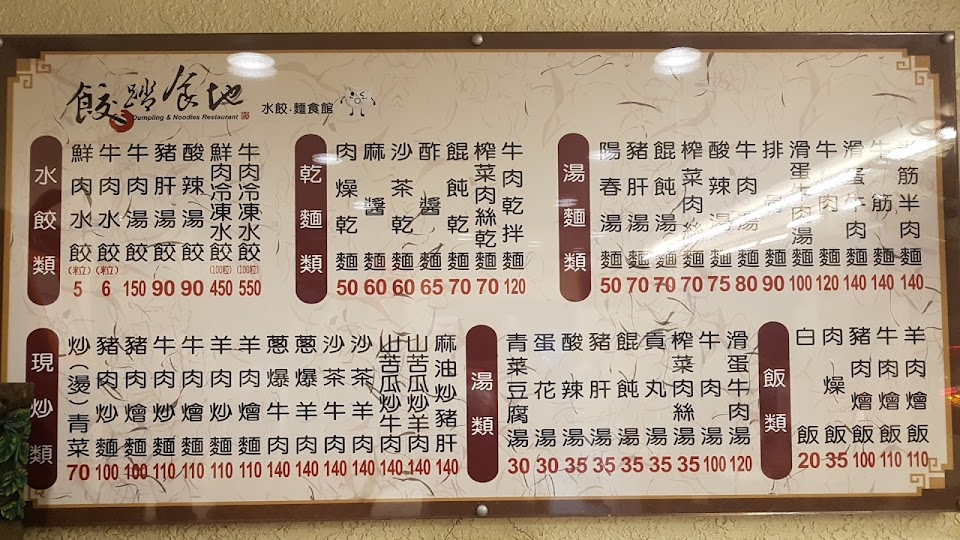 餃踏食地
Dumpling & Noodles Restaurant
水餃·麵食館
水餃類
鮮肉水餃(粒) 5
牛肉水餃(粒) 6
牛肉湯餃 150
豬肝湯餃 90
酸辣湯餃 90
鮮肉冷凍水餃(100粒) 450
牛肉冷凍水餃(100粒) 550
乾麵類
肉燥乾麵 50
麻醬麵 60
沙茶乾麵 60
酢醬麵 65
餛飩乾麵 70
榨菜肉絲乾麵 70
牛肉乾拌麵 120
湯麵類
陽春湯麵 50
豬肝湯麵 70
餛飩湯麵 70
榨菜肉絲麵 70
酸辣湯麵 75
牛肉湯麵 80
排骨麵 90
滑蛋牛肉湯麵 100
牛肉麵 120
滑蛋牛肉麵 140
牛筋麵 140
半筋半肉麵 140
現炒類
炒(燙)青菜 70
豬肉炒麵 100
豬肉燴麵 100
牛肉炒麵 110
牛肉燴麵 110
羊肉炒麵 110
羊肉燴麵 110
蔥爆牛肉 140
蔥爆羊肉 140
沙茶牛肉 140
沙茶羊肉 140
山苦瓜炒牛肉 140
山苦瓜炒羊肉 140
麻油炒豬肝 140
湯類
青菜豆腐湯 30
蛋花湯 30
酸辣湯 35
豬肝湯 35
餛飩湯 35
貢丸湯 35
榨菜肉絲湯 35
牛肉湯 100
滑蛋牛肉湯 120
飯類
白飯 20
肉燥飯 35
豬肉燴飯 100
牛肉燴飯 110
羊肉燴飯 110